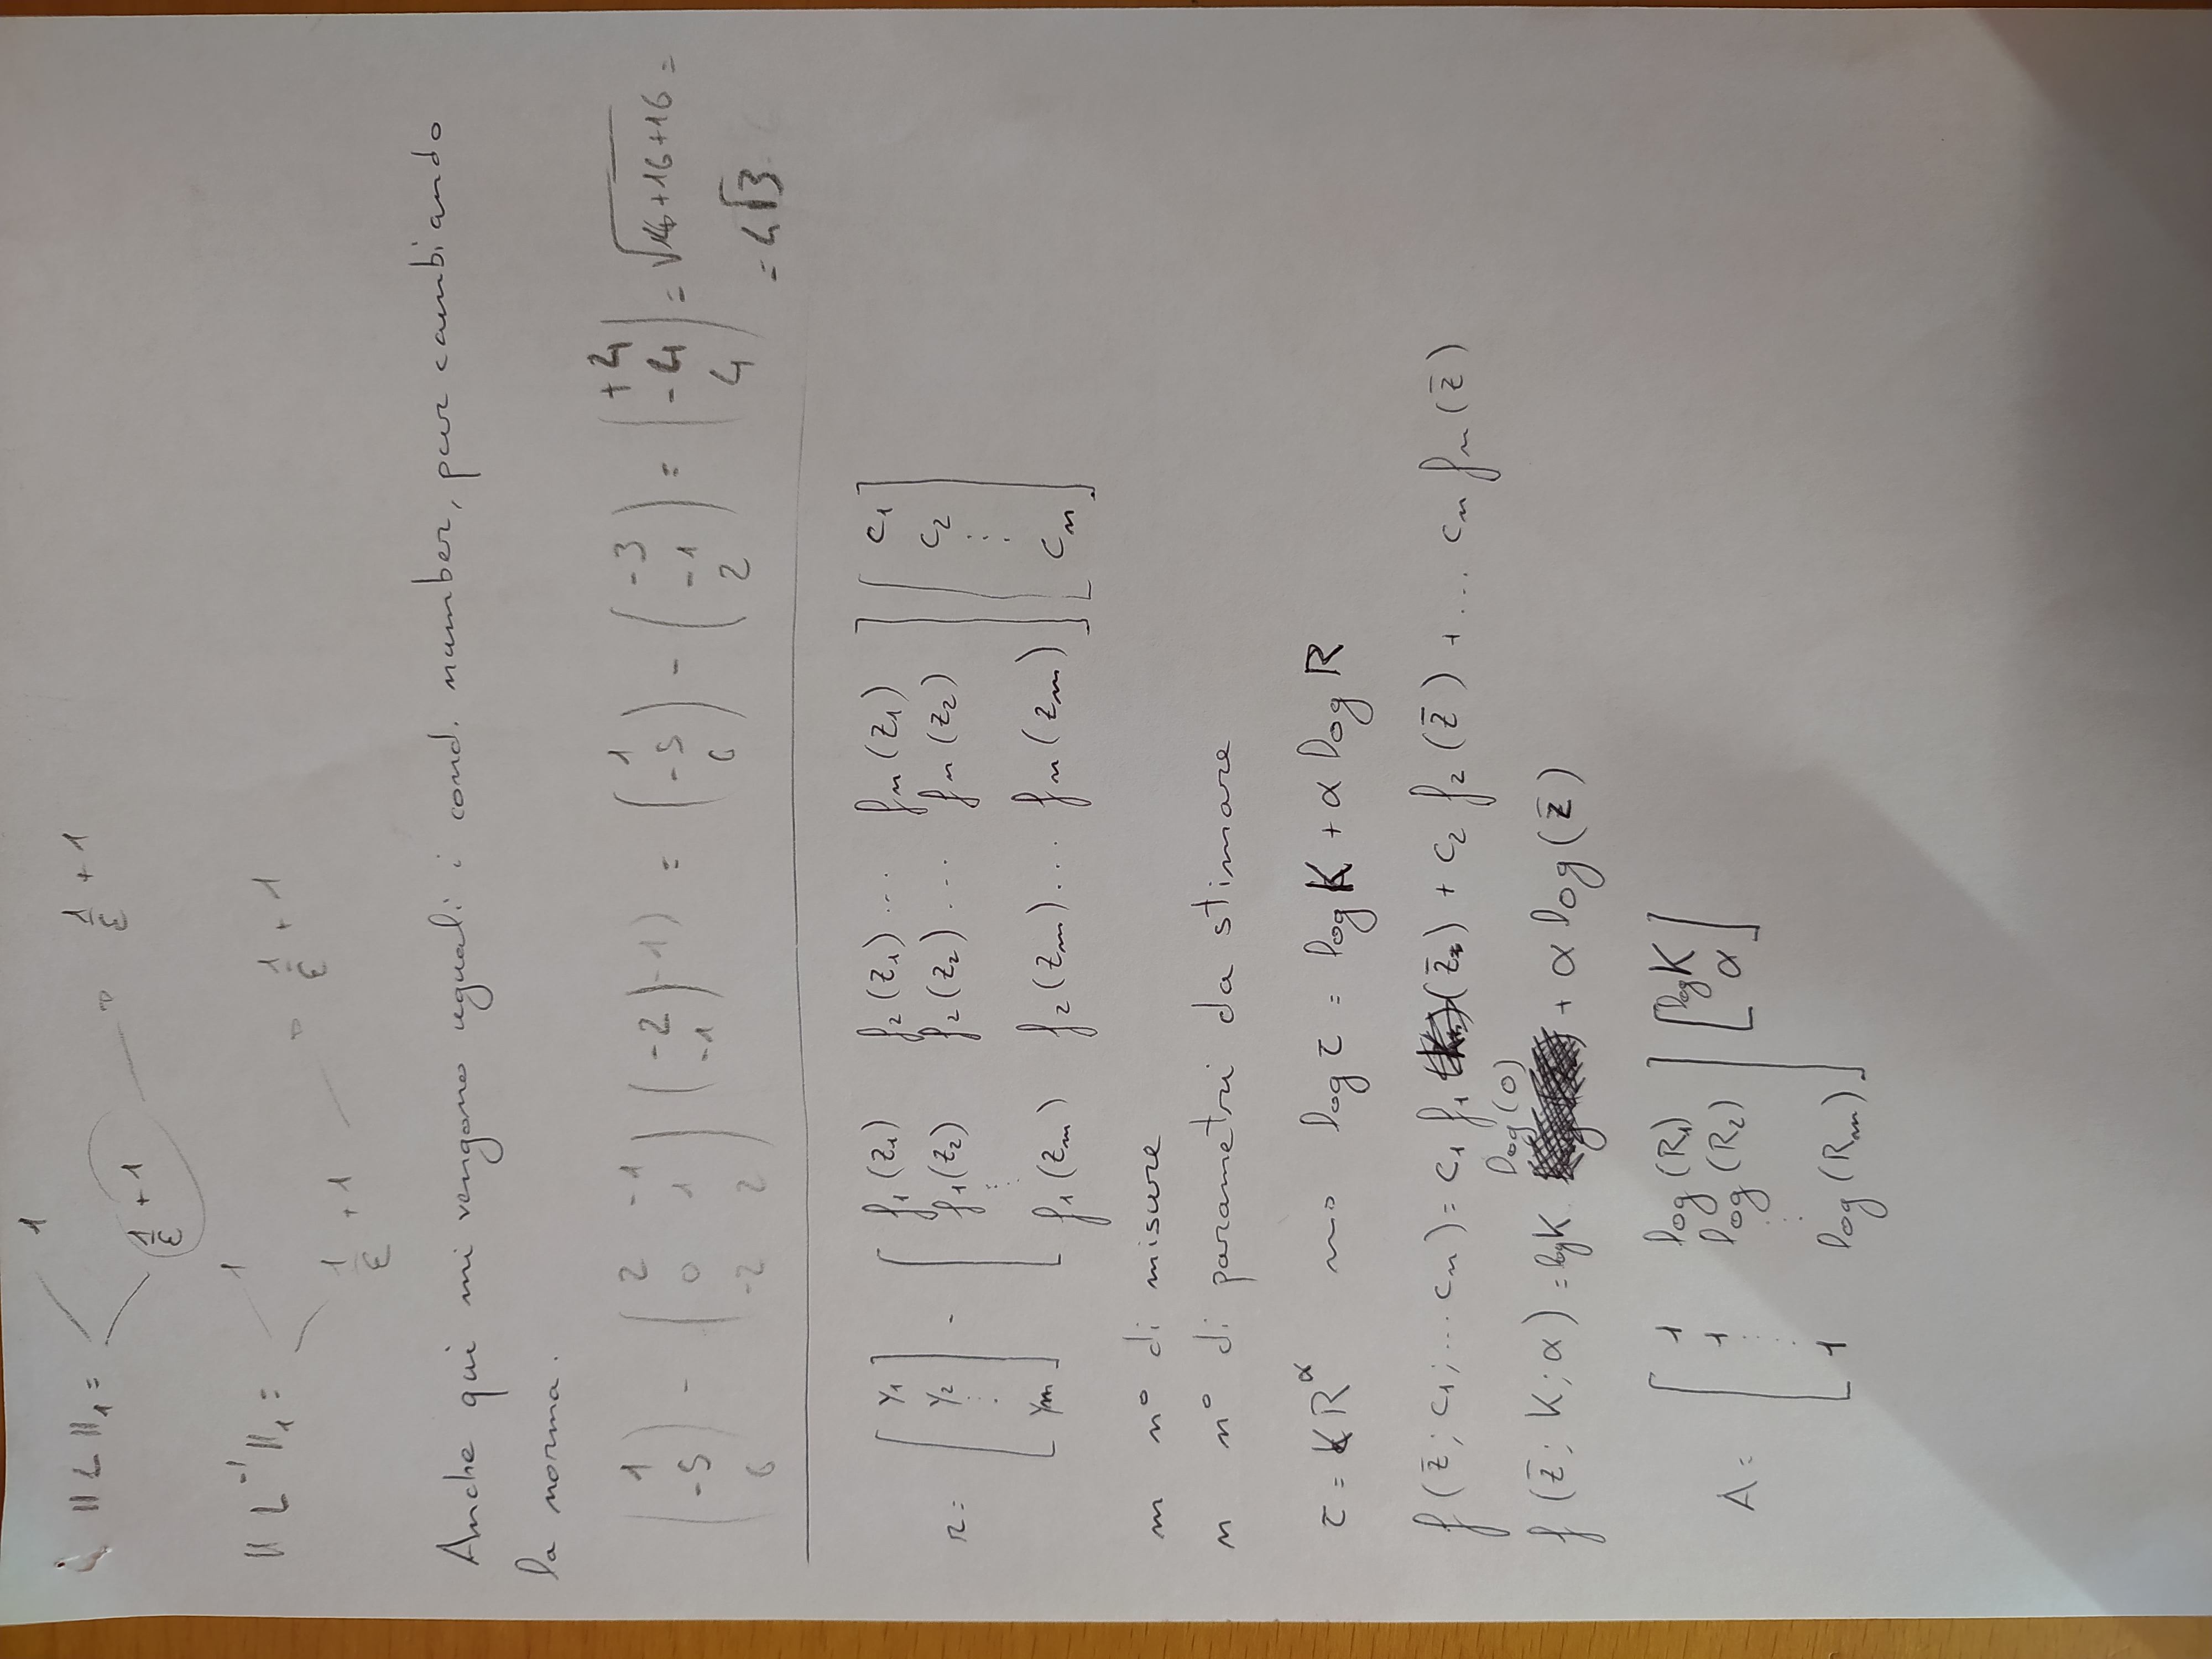 ‖L‖₁ = 1
1/ε + 1 → 1/ε + 1
‖L⁻¹‖₁ = 1
1/ε + 1 → 1/ε + 1
Anche qui mi vengono uguali i cond. number, pur cambiando
la norma.
(1 -5 6) - (2 -1 0 1 -2 2) (-2 -1) -1) = (1 -5 6) - (-3 -1 2) = (+4 -4 4) = √16+16+16 =
= 4√3
r = [y₁ y₂ ⋮ yₘ] - [f₁(z₁) f₂(z₁) ... fₙ(z₁)
f₁(z₂) f₂(z₂) ... fₙ(z₂)
⋮
f₁(zₘ) f₂(zₘ) ... fₙ(zₘ)] [c₁ c₂ ⋮ cₙ]
m n° di misure
n n° di parametri da stimare
τ = KR^α ⇝ log τ = log K + α log R
f(z̄; c₁; ... cₙ) = c₁ f₁ (z̄) + c₂ f₂(z̄) + ... cₙ fₙ(z̄)
log(0)
f(z̄; K; α) = logK + α log(z̄)
A = [1 log(R₁)
1 log(R₂)
⋮ ⋮
1 log(Rₘ)] [logK α]